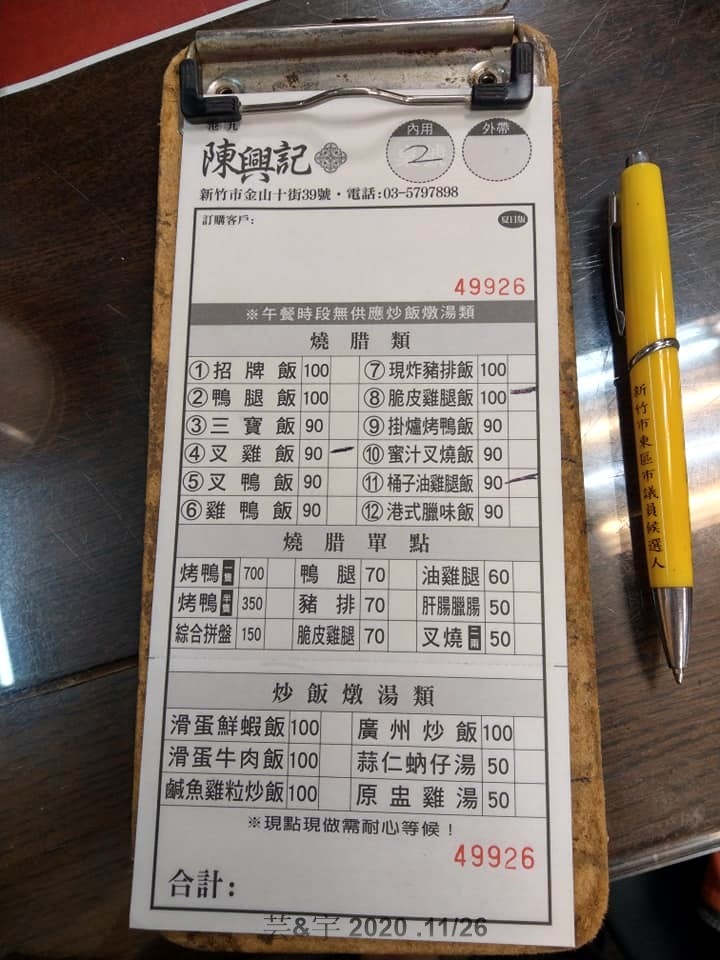 港九
陳興記
內用
2
外帶
新竹市金山十街39號・電話:03-5797898
訂購客戶:
夏日版
49926
※午餐時段無供應炒飯燉湯類
燒腊類
①招牌飯 100 ⑦現炸豬排飯 100
②鴨腿飯 100 ⑧脆皮雞腿飯 100
③三寶飯 90 ⑨掛爐烤鴨飯 90
④叉雞飯 90 ⑩蜜汁叉燒飯 90
⑤叉鴨飯 90 ⑪桶子油雞腿飯 90
⑥雞鴨飯 90 ⑫港式臘味飯 90
燒腊單點
烤鴨一隻 700 鴨腿 70 油雞腿 60
烤鴨半隻 350 豬排 70 肝腸臘腸 50
綜合拼盤 150 脆皮雞腿 70 叉燒二兩 50
炒飯燉湯類
滑蛋鮮蝦飯 100 廣州炒飯 100
滑蛋牛肉飯 100 蒜仁蚋仔湯 50
鹹魚雞粒炒飯 100 原盅雞湯 50
※現點現做需耐心等候！
49926
合計:
新竹市東區市議員候選人
芸&宇 2020 .11/26